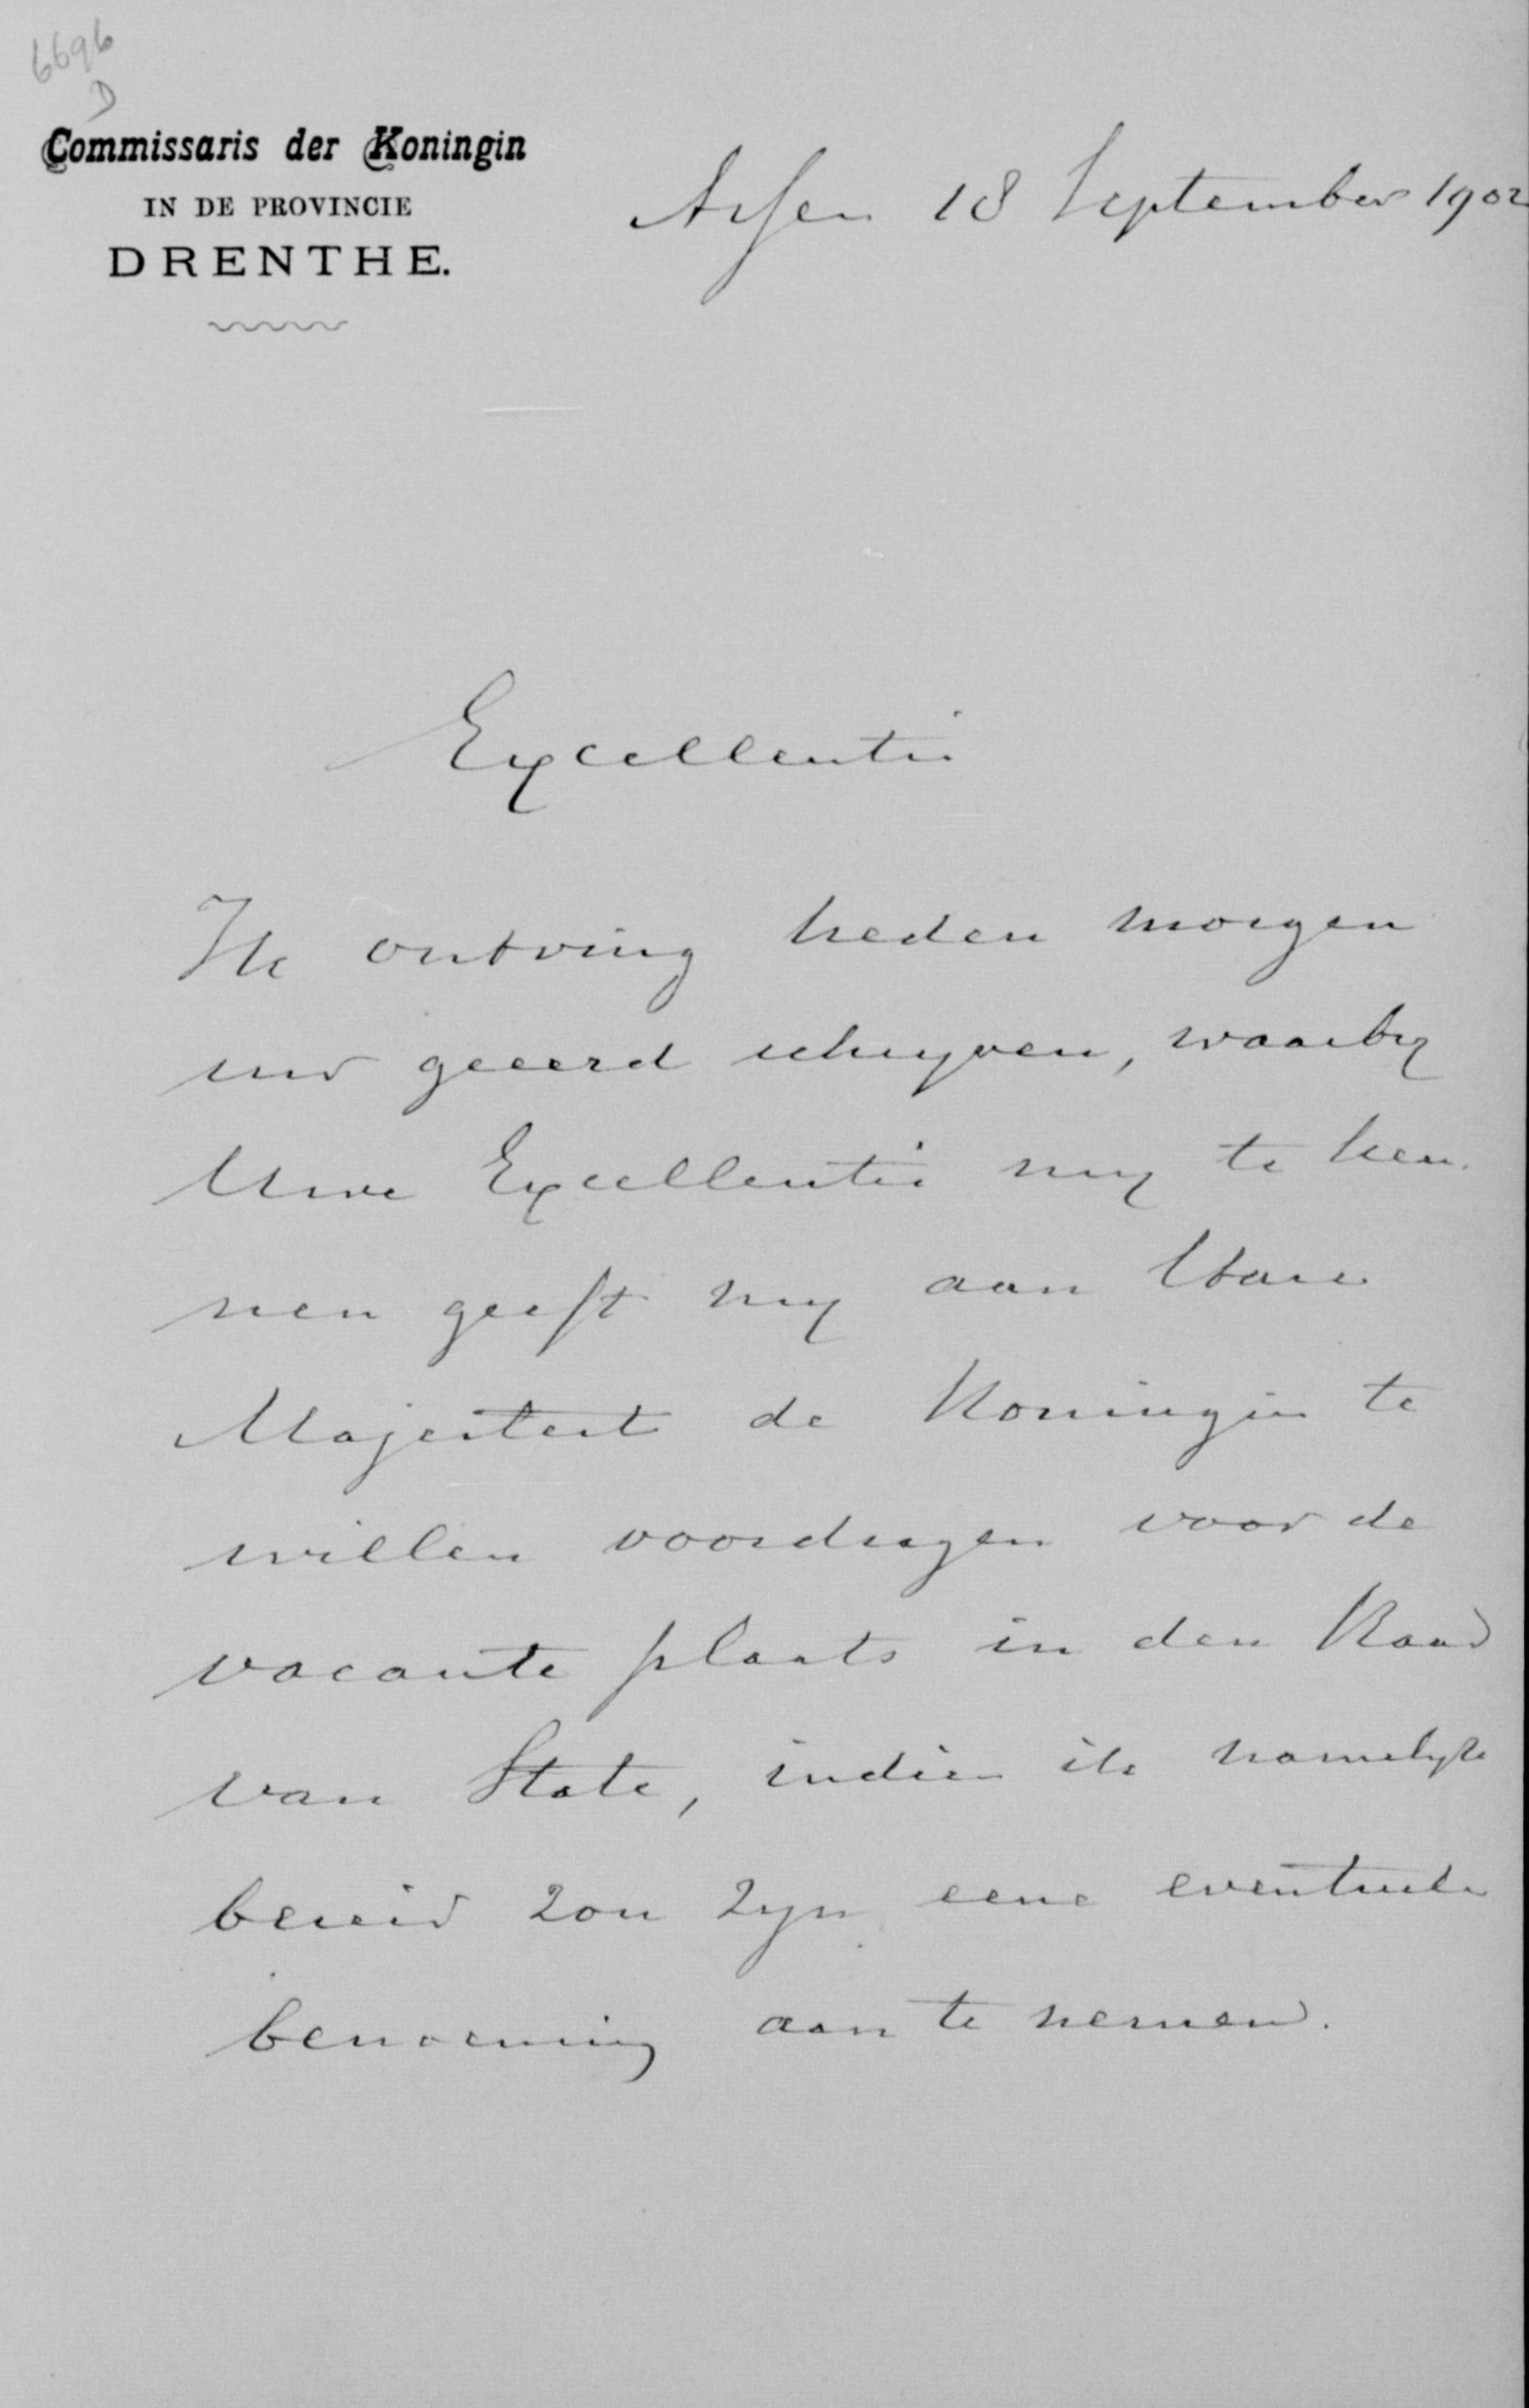 6696
D
Commissaris der Koningin
IN DE PROVINCIE
DRENTHE.
Assen 18 September 1902
Excellentie
Ik ontving heden morgen
uw geëerd schrijven, waarbij
Uwe Excellentie mij te ken-
nen geeft mij aan Hare
Majesteit de Koningin te
willen voordragen voor de
vacante plaats in den Raad
van State, indien ik namelijk
bereid zou zijn eene eventueele
benoeming aan te nemen.